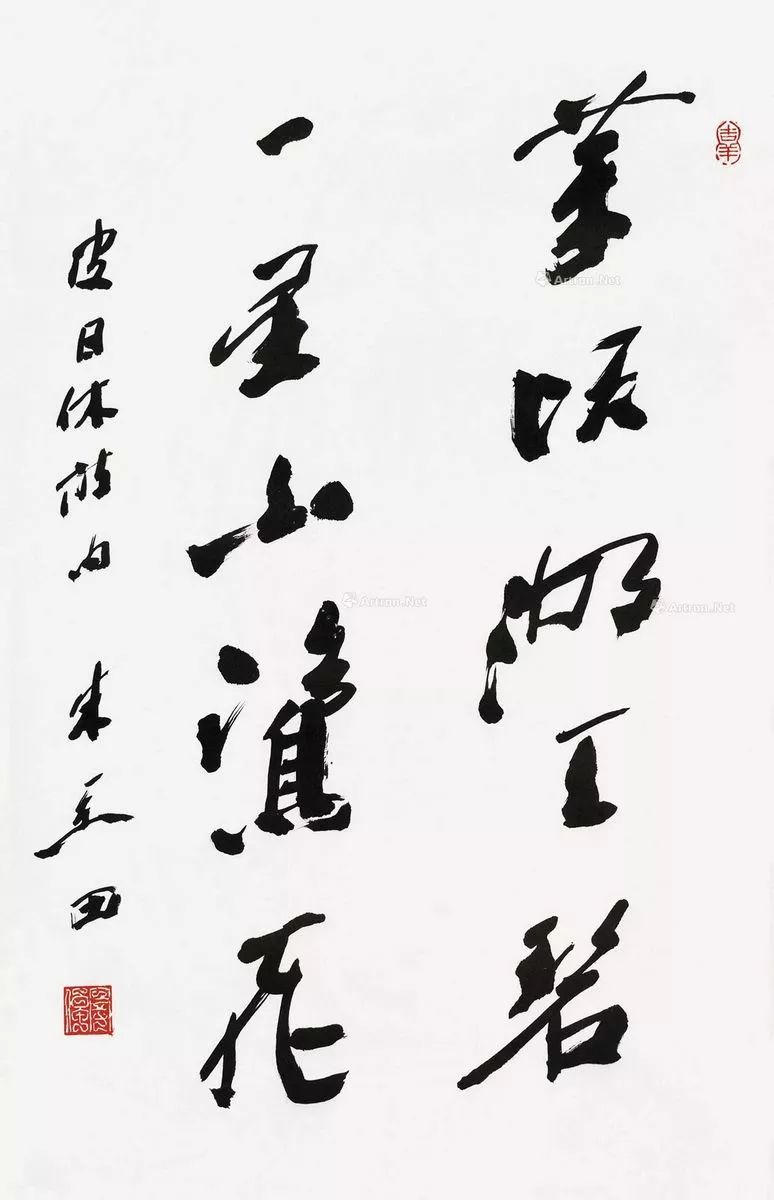 萬頃湖天碧
一星山飛
皮日休詩句 朱关田
Artron.Net
Artron.Net
Artron.Net